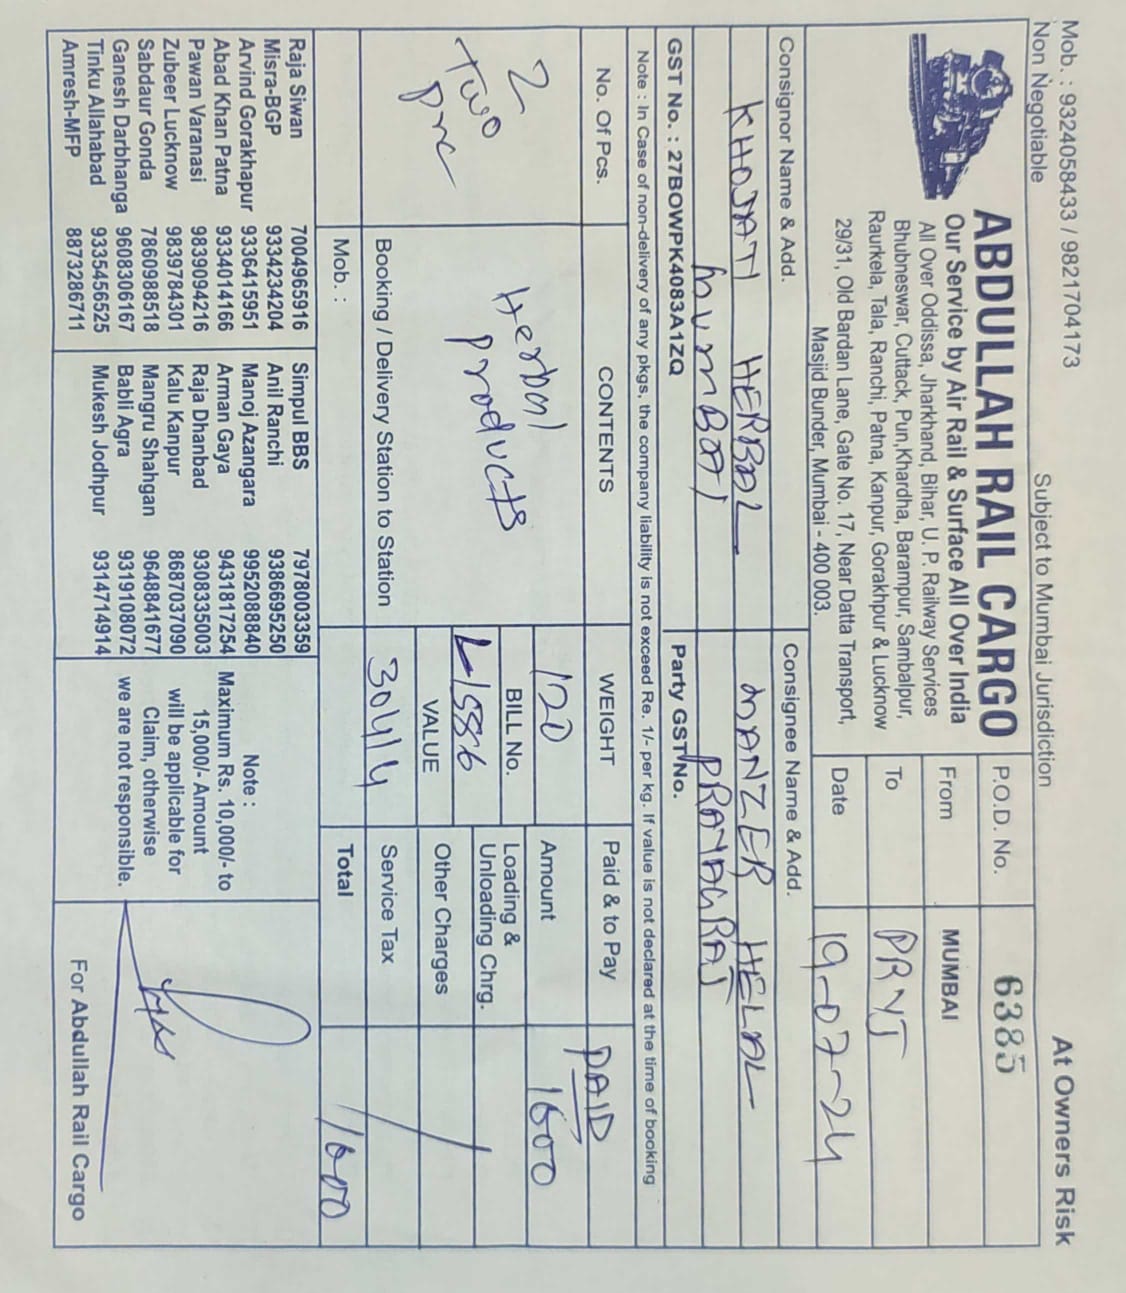 Mob. : 9324058433 / 9821704173
Non Negotiable
Subject to Mumbai Jurisdiction
At Owners Risk
ABDULLAH RAIL CARGO
Our Service by Air Rail & Surface All Over India
All Over Oddissa, Jharkhand, Bihar, U. P. Railway Services
Bhubneswar, Cuttack, Pun,Khardha, Barampur, Sambalpur,
Raurkela, Tala, Ranchi, Patna, Kanpur, Gorakhpur & Lucknow
29/31, Old Bardan Lane, Gate No. 17, Near Datta Transport,
Masjid Bunder, Mumbai - 400 003.
P.O.D. No. 6385
From MUMBAI
To PRYJ
Date 19-07-24
Consignor Name & Add.
KHOJATI HERBAL
MUMBAI
Consignee Name & Add.
MANZER HELAL
PRAYAGRAJ
GST No. : 27BOWPK4083A1ZQ
Party GST No.
Note : In Case of non-delivery of any pkgs, the company liability is not exceed Re. 1/- per kg. If value is not declared at the time of booking
No. Of Pcs. CONTENTS WEIGHT Paid & to Pay PAID
2
Two
Herbal
products
120
Amount 1600
BILL No.
Loading &
Unloading Chrg.
VALUE
Other Charges
Booking / Delivery Station to Station
Service Tax
Mob. :
Total 1600
Raja Siwan 7004965916
Misra-BGP 9334234204
Arvind Gorakhapur 9336415951
Abad Khan Patna 9334014166
Pawan Varanasi 9839094216
Zubeer Lucknow 9839784301
Sabdaur Gonda 7860988518
Ganesh Darbhanga 9608306167
Tinku Allahabad 9335456525
Amresh-MFP 8873286711
Simpul BBS 7978003359
Anil Ranchi 9386695250
Manoj Azangara 9952088840
Arman Gaya 9431817254
Raja Dhanbad 9308335003
Kalu Kanpur 8687037090
Mangru Shahgan 9648841677
Babli Agra 9319108072
Mukesh Jodhpur 9314714914
Note :
Maximum Rs. 10,000/- to
15,000/- Amount
will be applicable for
Claim, otherwise
we are not responsible.
For Abdullah Rail Cargo